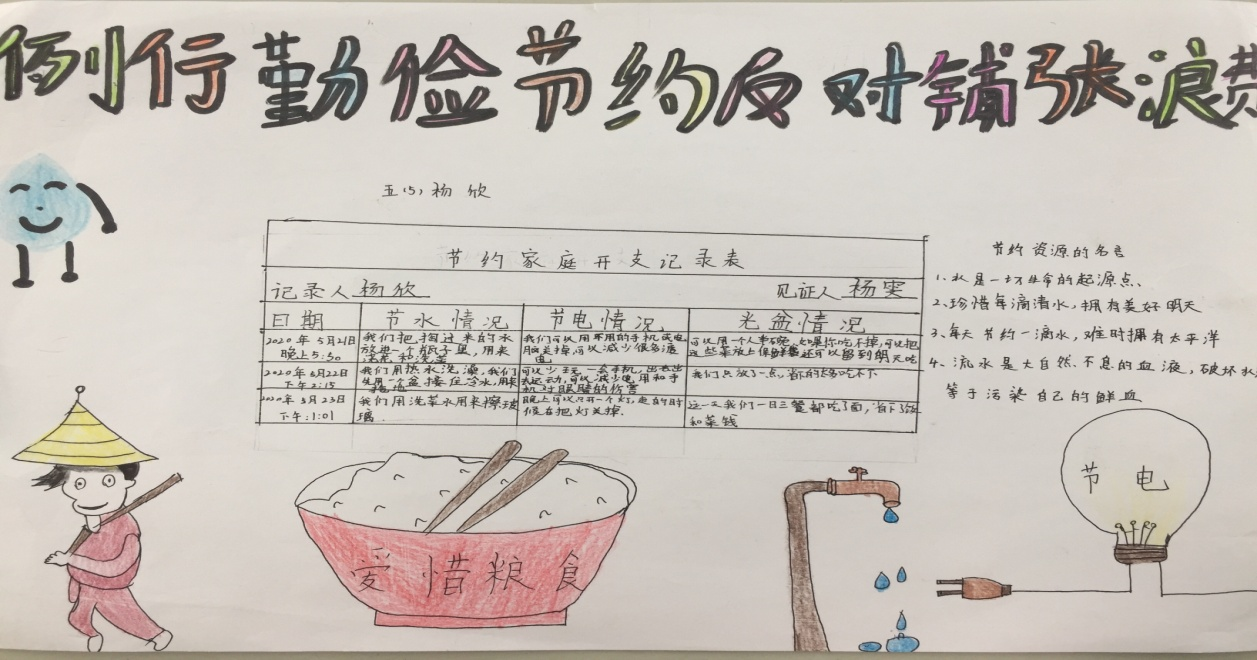 例行勤俭节约反对铺张浪费
五(5)杨欣
节约家庭开支记录表
记录人杨欣 见证人杨奕
日期 节水情况 节电情况 光盆情况
2020年5月21日
晚上5:30
我们把掏过来的水
放进一个瓶子里,用来
浇花和洗菜
我们可以用不用的手机或电
脑关掉,可以减少很多浪
电
可以用一个人拿碗,如果你吃不掉,可以把
这些菜放上保鲜还可以留到明天吃
2020年5月22日
下午2:15
我们用热水洗澡,我们
先用一个盆接住冷水,用来
拖地
可以少玩一会手机,出去
运动,可以减少电用和手
机对眼睛的伤害
我们只放了一点,省的太多吃不下
2020年5月23日
下午:1:01
我们用洗菜水用来擦玻
璃..
晚上可以只开一个灯,走的时
候在把灯关掉.
这一天我们一日三餐都吃了面,省下了饭
和菜钱
节约资源的名言
1、水是一切生命的起源点、
2、珍惜每滴清水,拥有美好明天
3、每天节约一滴水,难时拥有太平洋
4、流水是大自然不息的血液,破坏水
等于污染自己的鲜血
节电
爱惜粮食